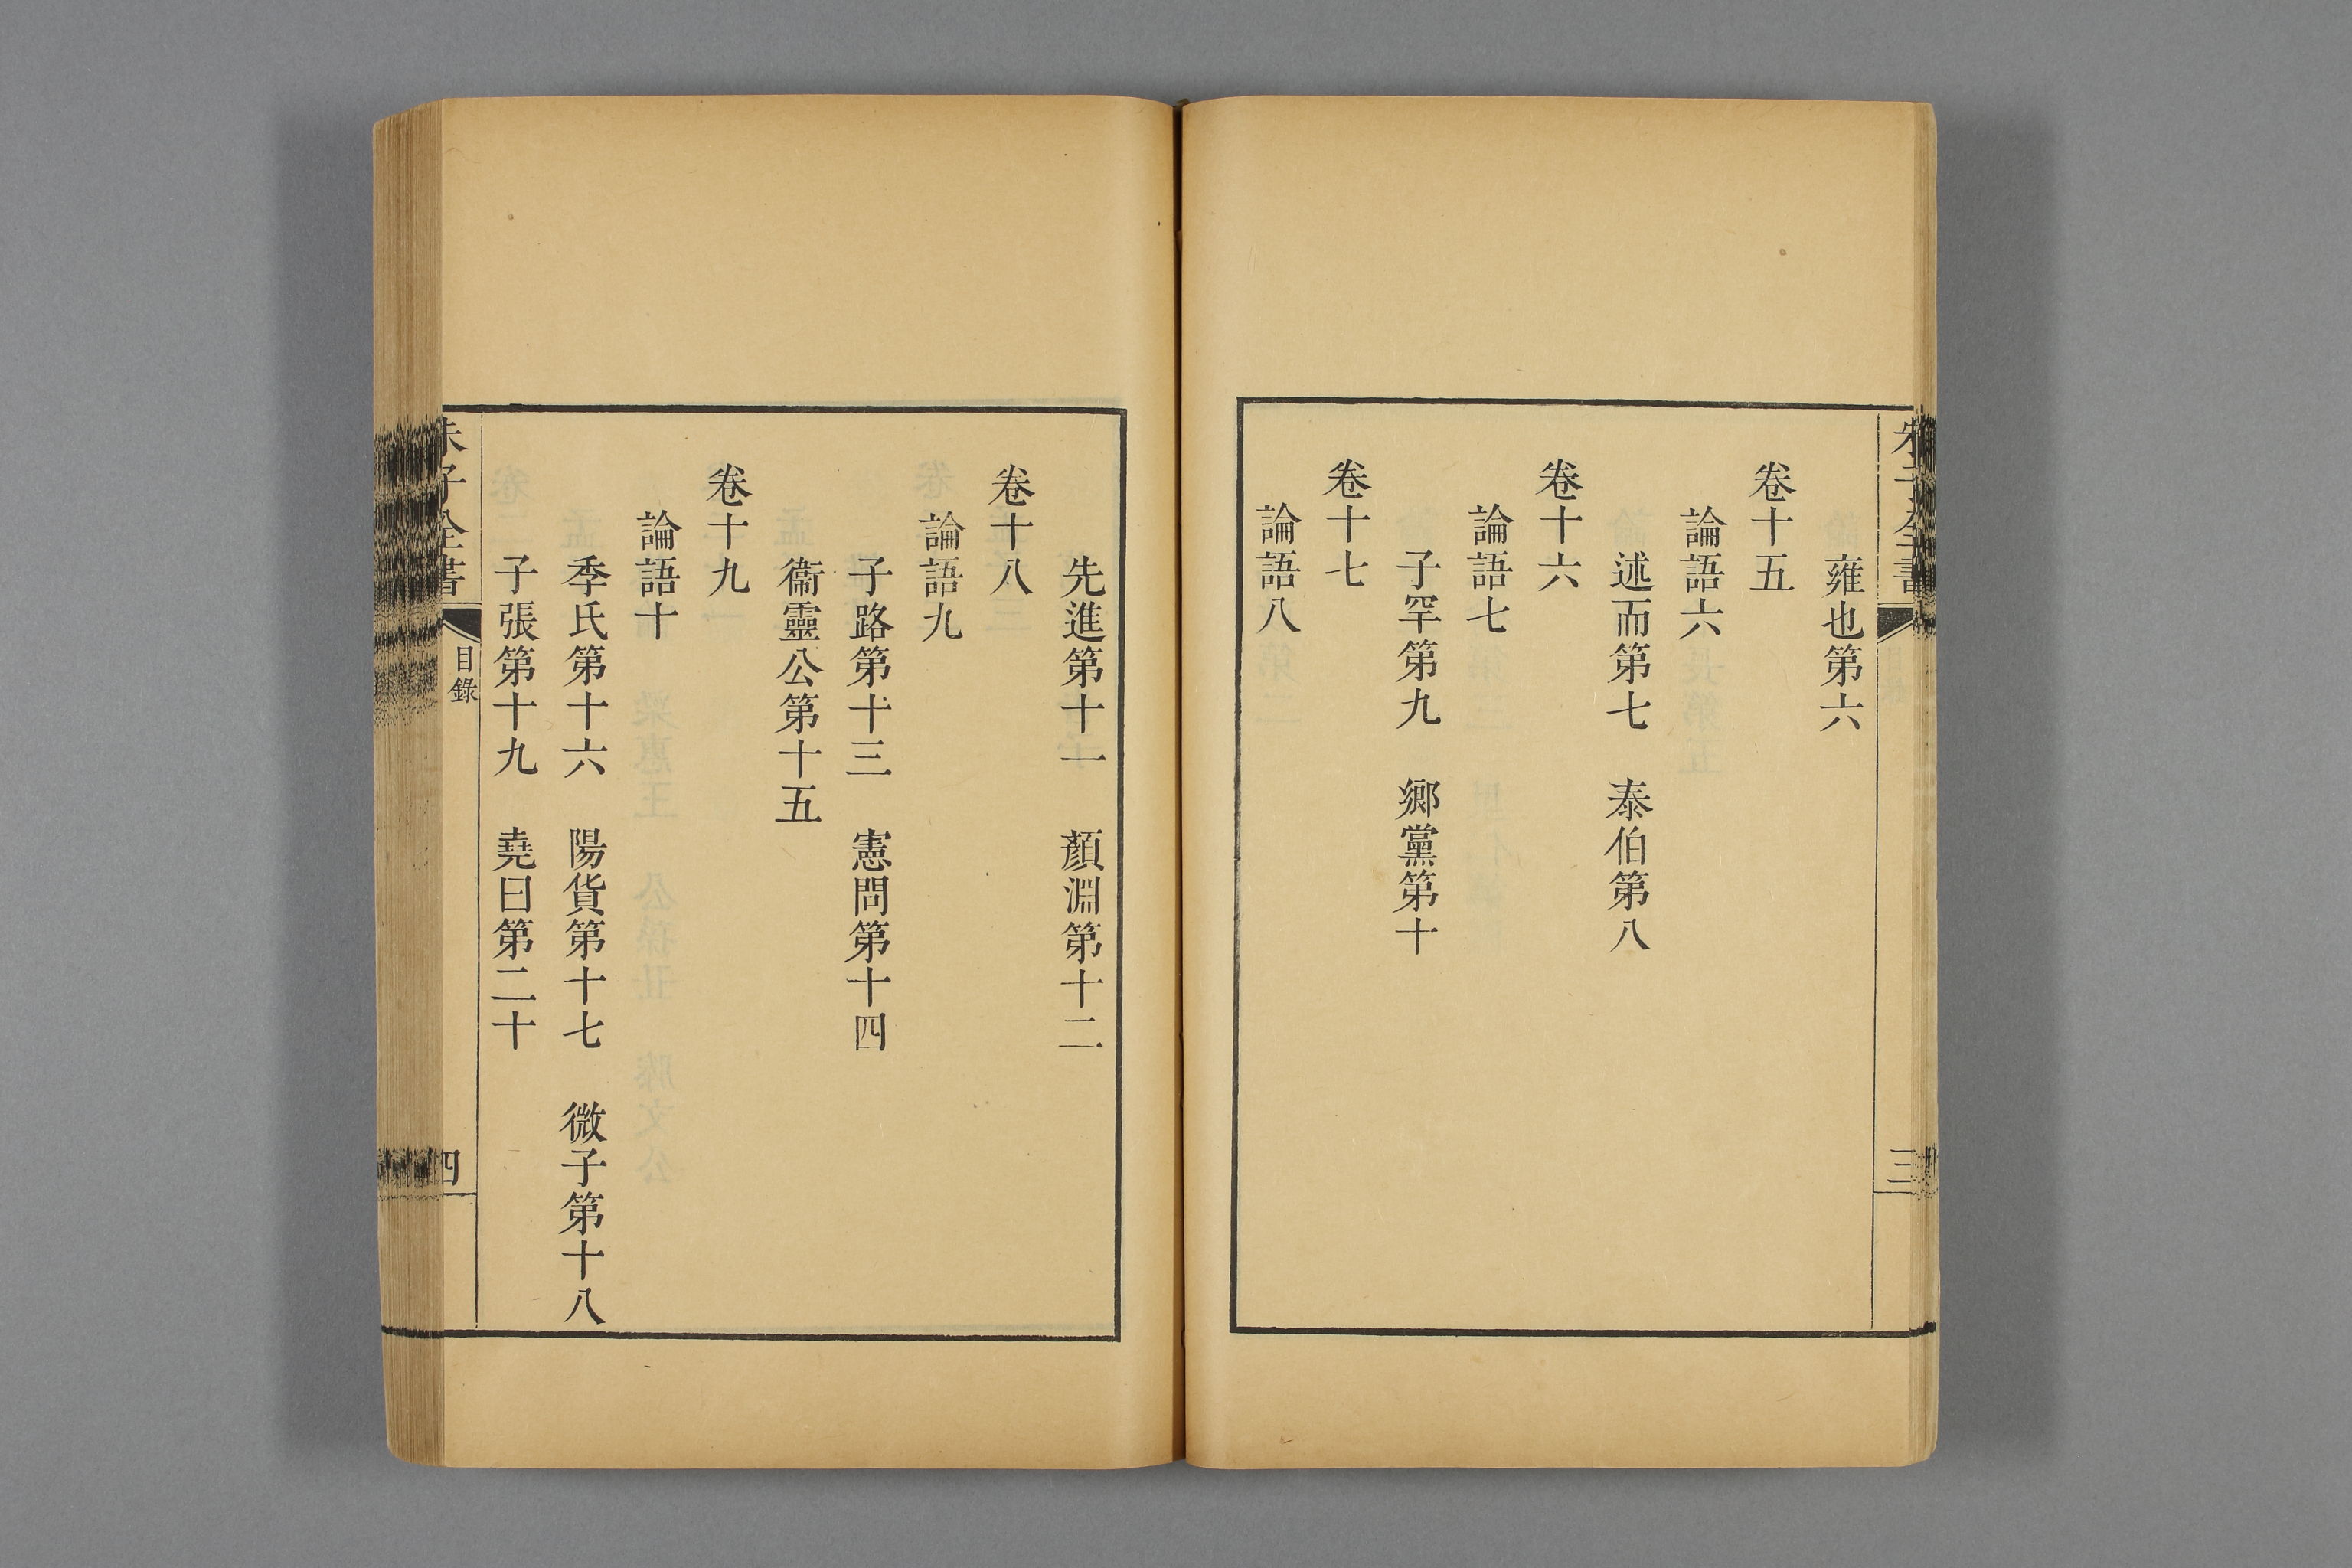 朱子全書
三
雍也第六
卷十五
論語六
述而第七　泰伯第八
卷十六
論語七
子罕第九　鄉黨第十
卷十七
論語八
先進第十一　顏淵第十二
卷十八
論語九
子路第十三　憲問第十四
衞靈公第十五
卷十九
論語十
季氏第十六　陽貨第十七　微子第十八
子張第十九　堯曰第二十
朱子全書
目錄
四